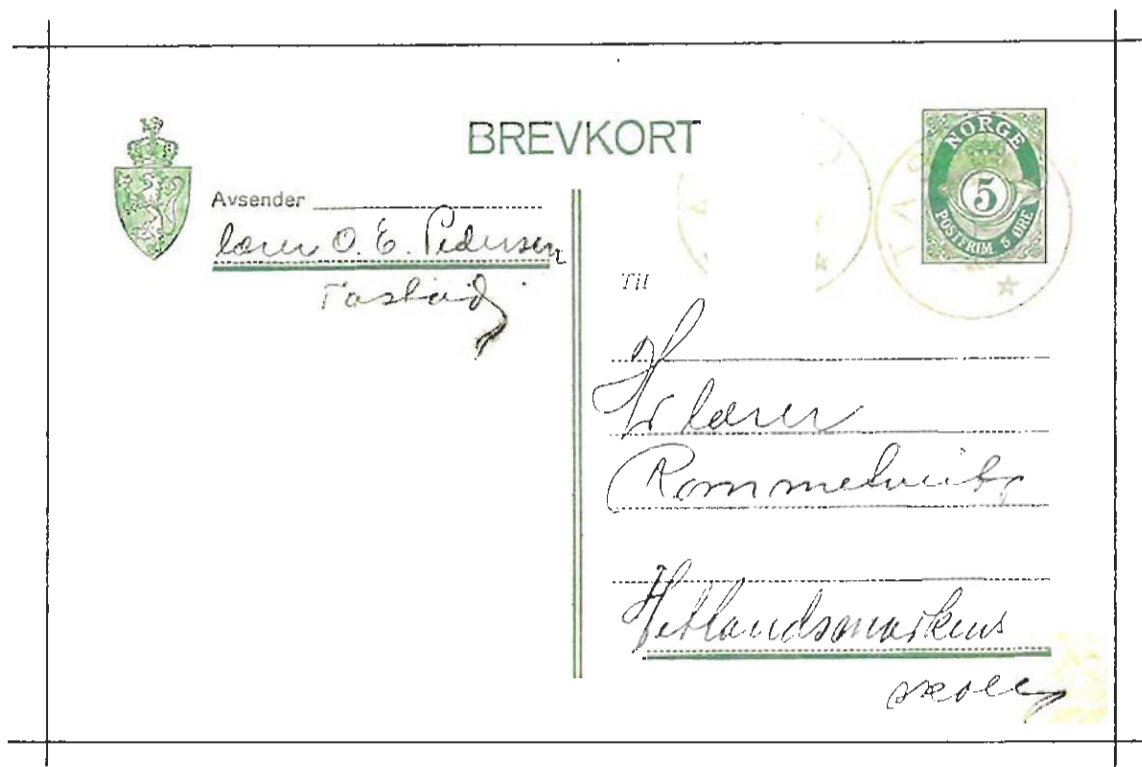 BREVKORT
NORGE
5
POSTFRIM. 5 ØRE
Avsender
lærer O. E. Pedersen
Tastad
Til
Hr lærer
Rommetveit
Hetlandsmarkens
skole